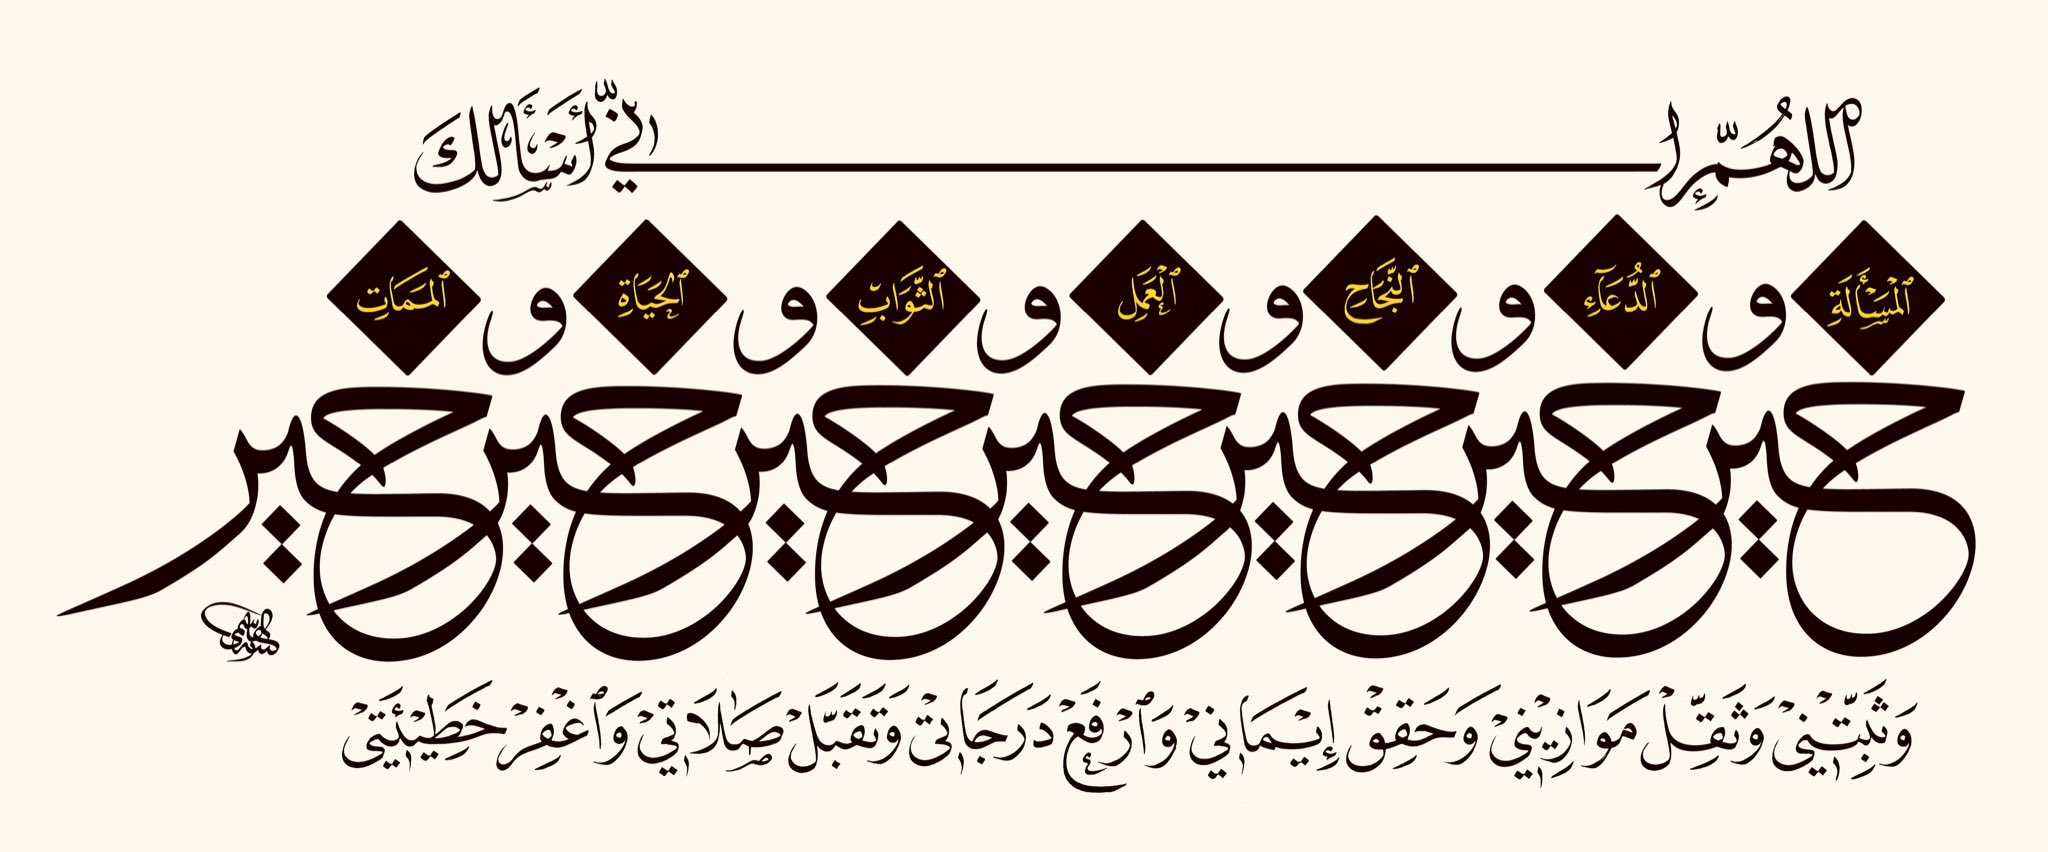 اللهم اني أسألك
خير المسألة و خير الدعاء و خير النجاح و خير العمل و خير الثواب و خير الحياة و خير الممات
وَثَبِّتْنِيْ وَثَقِّلْ مَوَازِيْنِيْ وَحَقِقْ إِيْمَانِيْ وَٱرْفَعْ دَرَجَاتِيْ وَتَقَبَّلْ صَلَاتِيْ وَٱغْفِرْ خَطِيْئَتِيْ